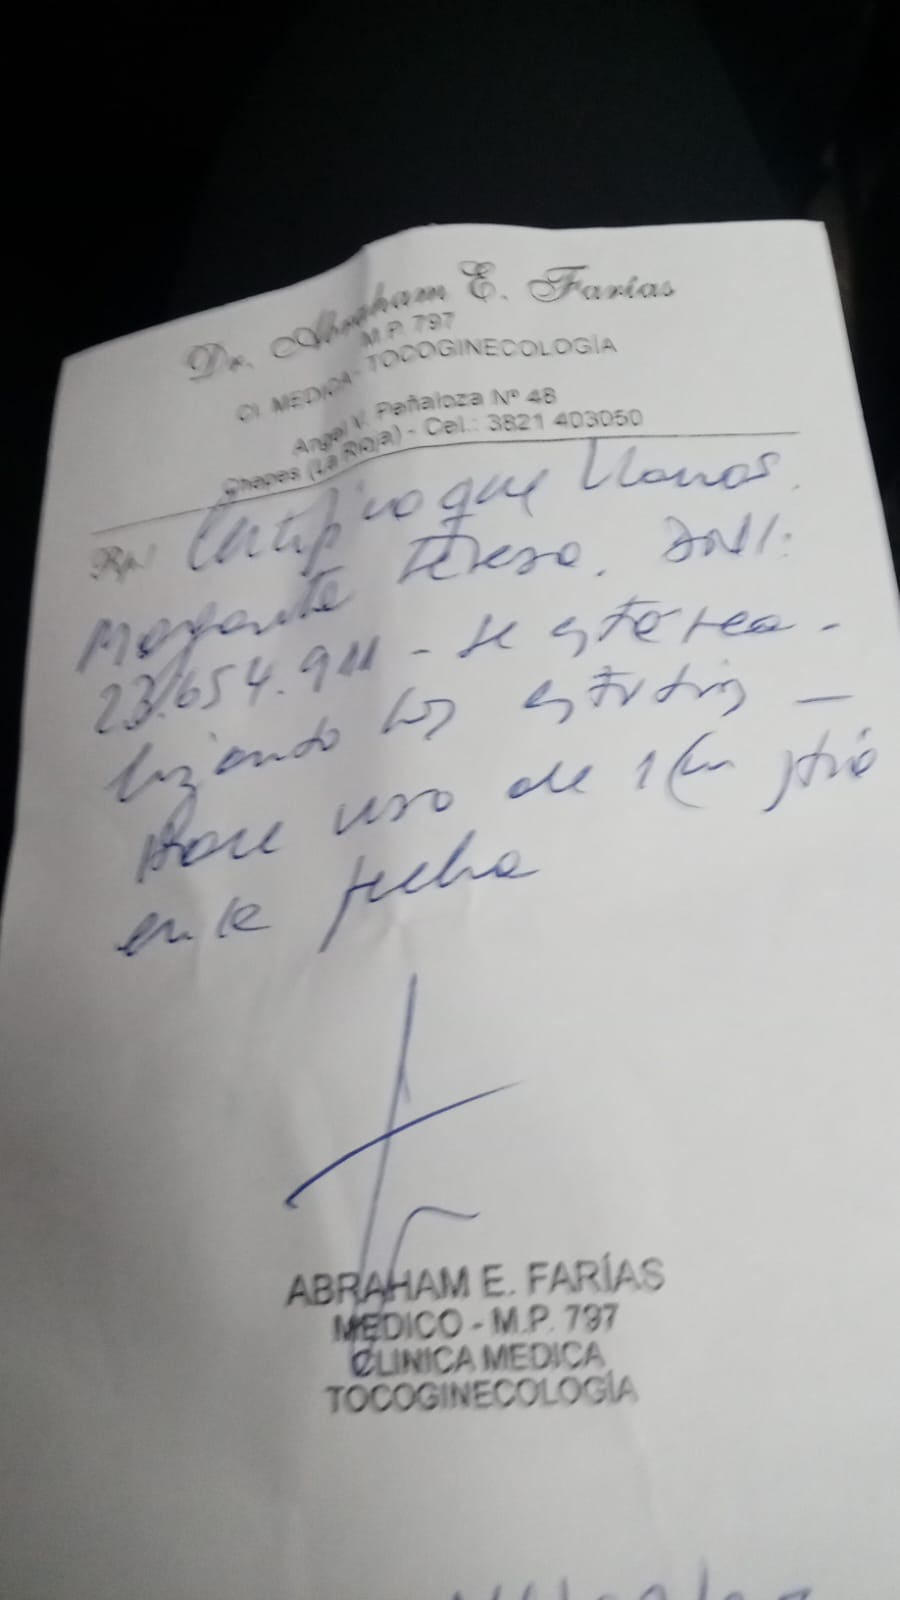 Dr. Abraham E. Farías
M.P. 797
Cl. MEDICA - TOCOGINECOLOGÍA
Angel V. Peñaloza Nº 48
Chepes (La Rioja) - Cel.: 3821 403050
Rp/ Certifico que Llanos
Margarita Teresa. DNI:
23.654.911 - se esta rea-
lizando los estudios -
Hace uso de
en la fecha
ABRAHAM E. FARÍAS
MEDICO - M.P. 797
CLINICA MEDICA
TOCOGINECOLOGÍA